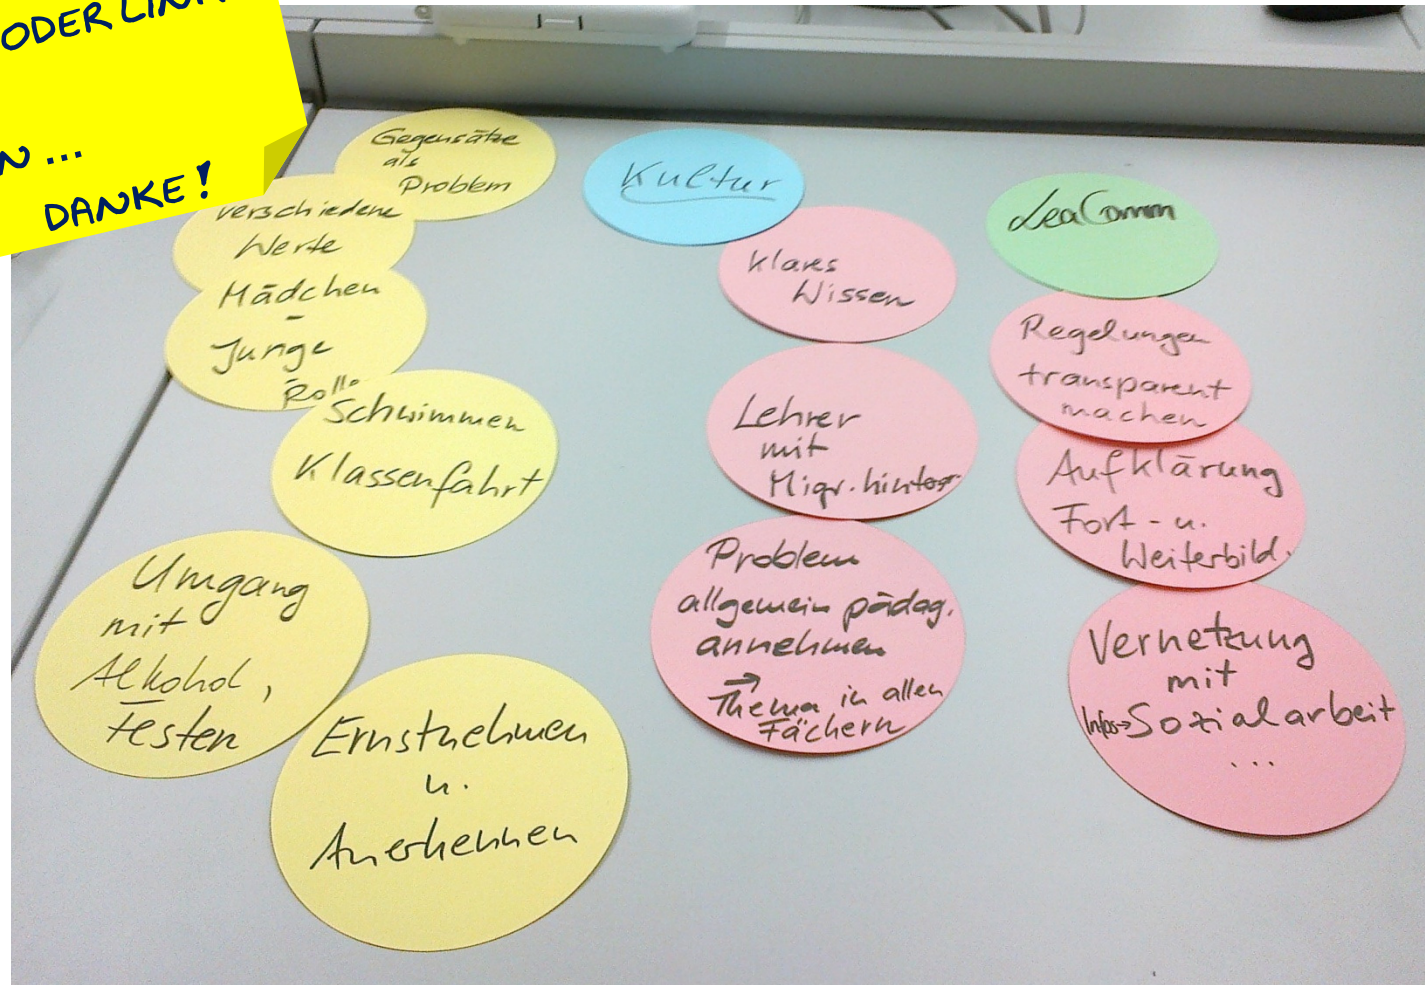 ODER LINK
N ...
DANKE!
Gegensätze
als
Problem
verschiedene
Werte
Mädchen
-
Junge
Rolle
Schwimmen
Klassenfahrt
Umgang
mit
Alkohol,
Festen
Ernstnehmen
u.
Anerkennen
Kultur
klares
Wissen
Lehrer
mit
Migr.hintergr
Problem
allgemein pädag.
annehmen
→
Thema in allen
Fächern
LeaComm
Regelungen
transparent
machen
Aufklärung
Fort- u.
Weiterbild.
Vernetzung
mit
Infos→Sozialarbeit
...